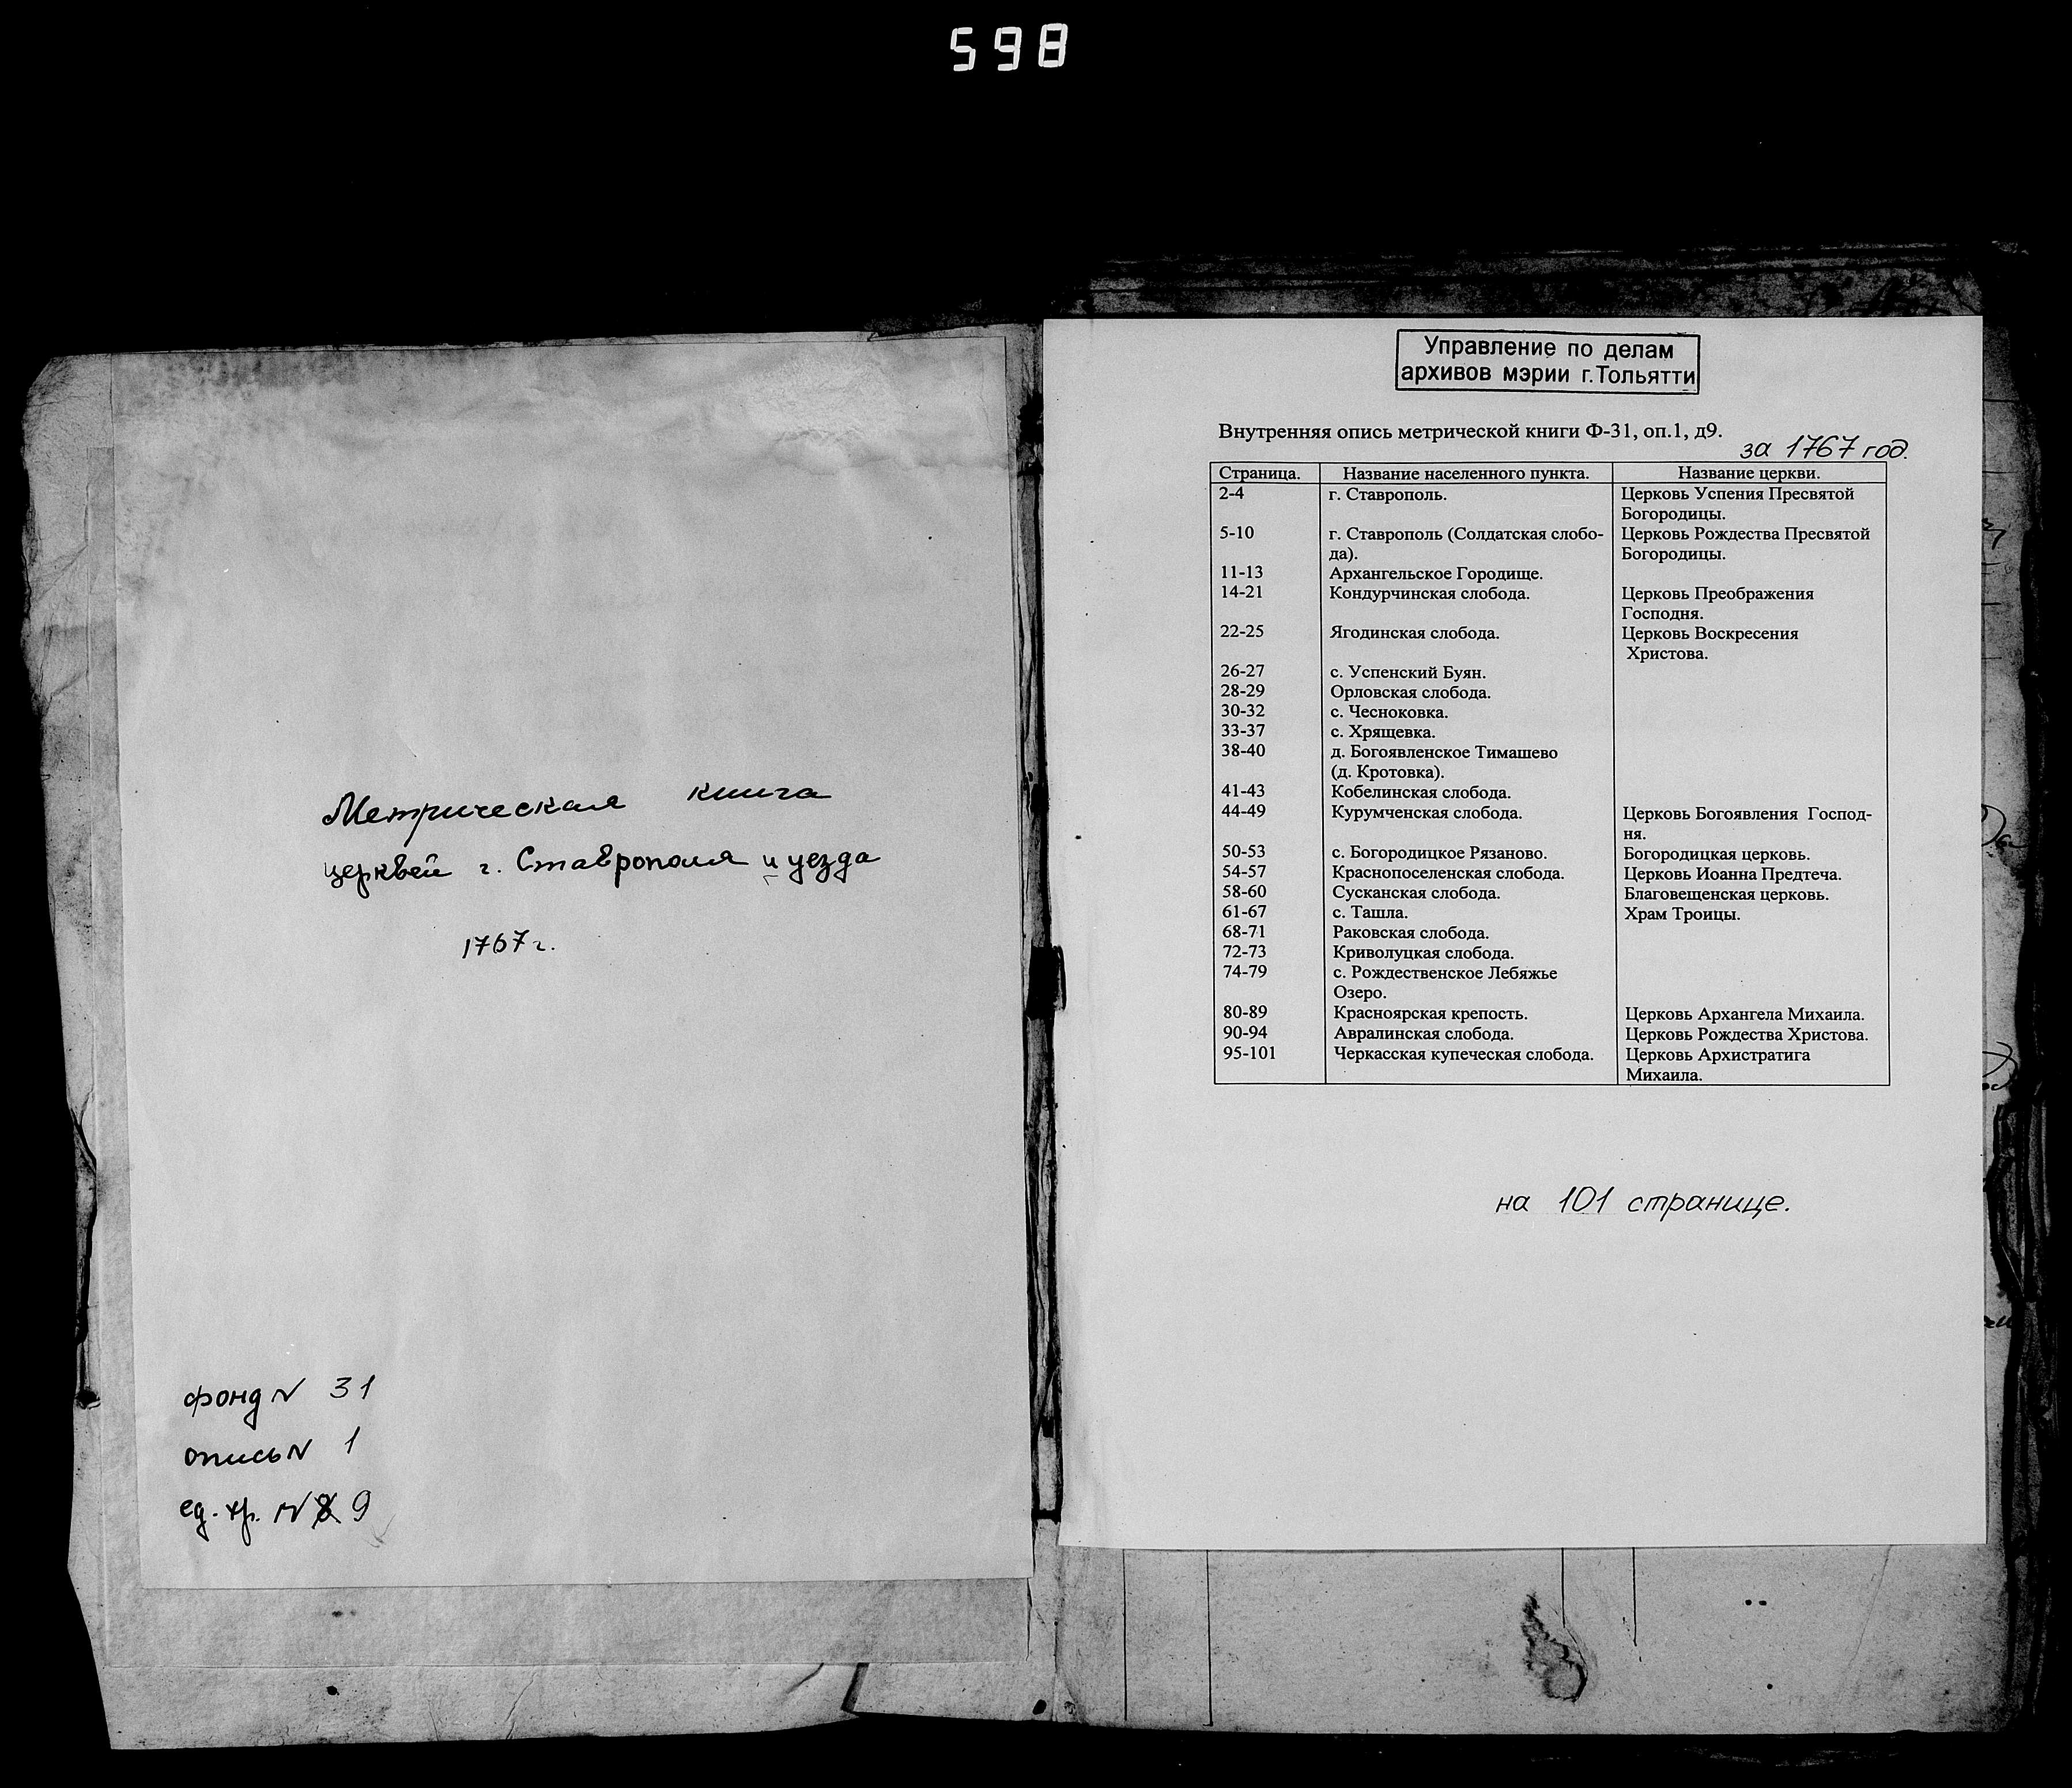 598
Метрическая книга
церквей г. Ставрополя и уезда
1767 г.
фонд № 31
опись № 1
ед. хр. № 9
Управление по делам
архивов мэрии г.Тольятти
Внутренняя опись метрической книги Ф-31, оп.1, д9.
за 1767 год.
Страница. Название населенного пункта. Название церкви.
2-4 г. Ставрополь. Церковь Успения Пресвятой
Богородицы.
5-10 г. Ставрополь (Солдатская слобо- Церковь Рождества Пресвятой
да). Богородицы.
11-13 Архангельское Городище.
14-21 Кондурчинская слобода. Церковь Преображения
Господня.
22-25 Ягодинская слобода. Церковь Воскресения
Христова.
26-27 с. Успенский Буян.
28-29 Орловская слобода.
30-32 с. Чесноковка.
33-37 с. Хрящевка.
38-40 д. Богоявленское Тимашево
(д. Кротовка).
41-43 Кобелинская слобода.
44-49 Курумченская слобода. Церковь Богоявления Господ-
ня.
50-53 с. Богородицкое Рязаново. Богородицкая церковь.
54-57 Краснопоселенская слобода. Церковь Иоанна Предтеча.
58-60 Сусканская слобода. Благовещенская церковь.
61-67 с. Ташла. Храм Троицы.
68-71 Раковская слобода.
72-73 Криволуцкая слобода.
74-79 с. Рождественское Лебяжье
Озеро.
80-89 Красноярская крепость. Церковь Архангела Михаила.
90-94 Авралинская слобода. Церковь Рождества Христова.
95-101 Черкасская купеческая слобода. Церковь Архистратига
Михаила.
на 101 странице.